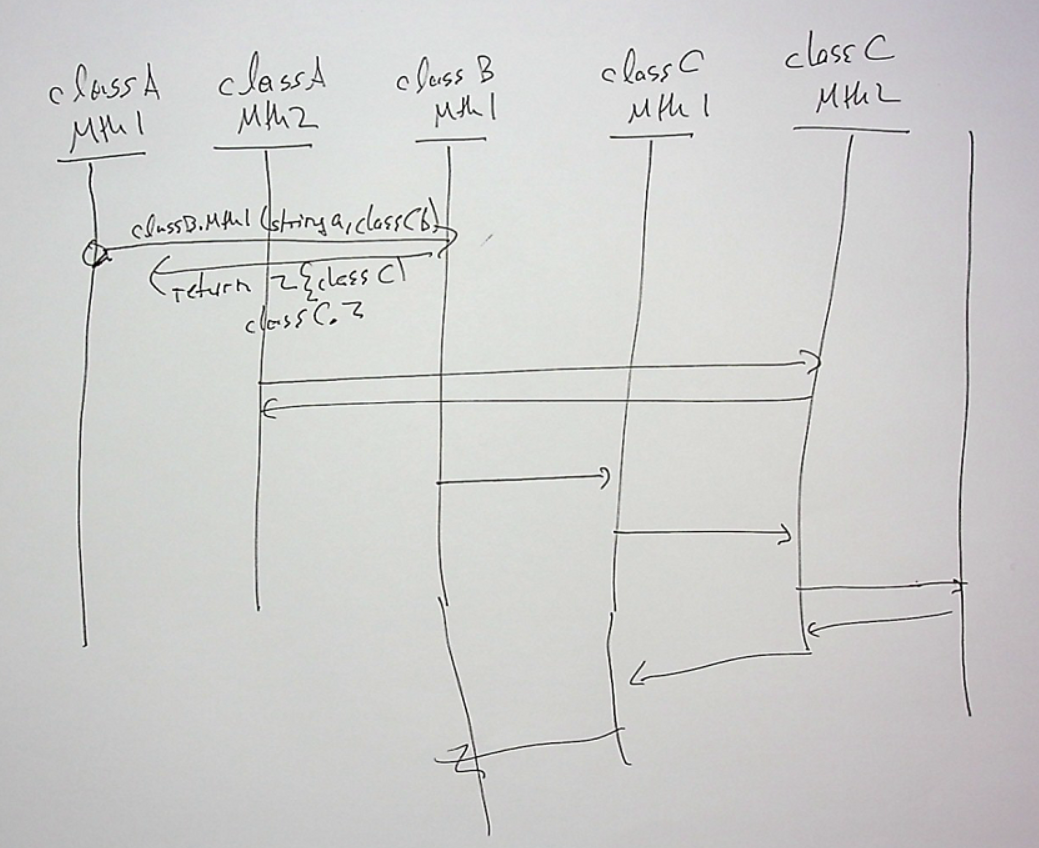 classA
Mth1
classA
Mth2
class B
Mth1
classC
Mth1
classC
Mth2
classB.Mth1 (string a, classC b)
return z {classC}
classC.z